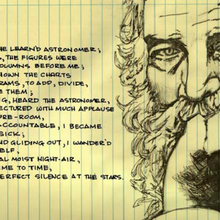 HE LEARN'D ASTRONOMER;
, THE FIGURES WERE
OLUMNS BEFORE ME;
HOWN THE CHARTS
RAMS, TO ADD, DIVIDE,
E THEM;
G, HEARD THE ASTRONOMER,
ECTURED WITH MUCH APPLAUSE
RE-ROOM,
CCOUNTABLE, I BECAME
SICK;
ND GLIDING OUT, I WANDER'D
ELF,
AL MOIST NIGHT-AIR,
ME TO TIME,
ERFECT SILENCE AT THE STARS.